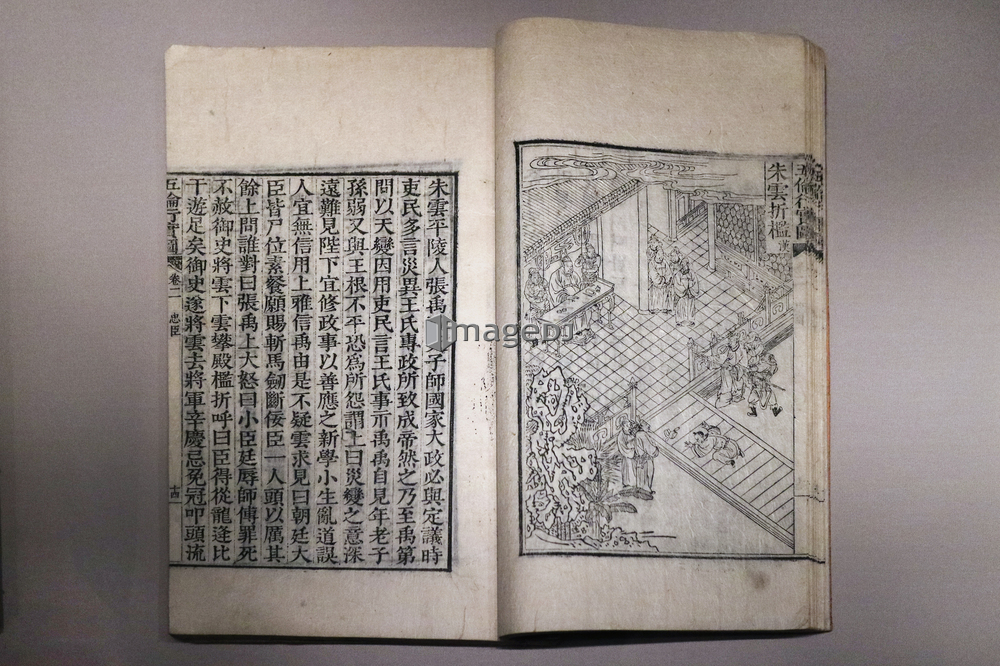 五倫行實圖
朱雲折檻 漢
朱雲平陵人張禹子師國家大政必與定議時
吏民多言災異王氏專政所致成帝然之乃至禹第
問以天變因用吏民言王氏事示禹禹自見年老子
孫弱又與王根不平恐爲所怨謂上曰災變之意深
遠難見陛下宜修政事以善應之新學小生亂道誤
人宜無信用上雅信禹由是不疑雲求見曰朝廷大
臣皆尸位素餐願賜斬馬劍斷佞臣一人頭以厲其
餘上問誰對曰張禹上大怒曰小臣廷辱師傅罪死
不赦御史將雲下雲攀殿檻折呼曰臣得從龍逄比
干遊足矣御史遂將雲去將軍辛慶忌免冠叩頭流
五倫行實圖 卷二 忠臣 十四
imageDJ